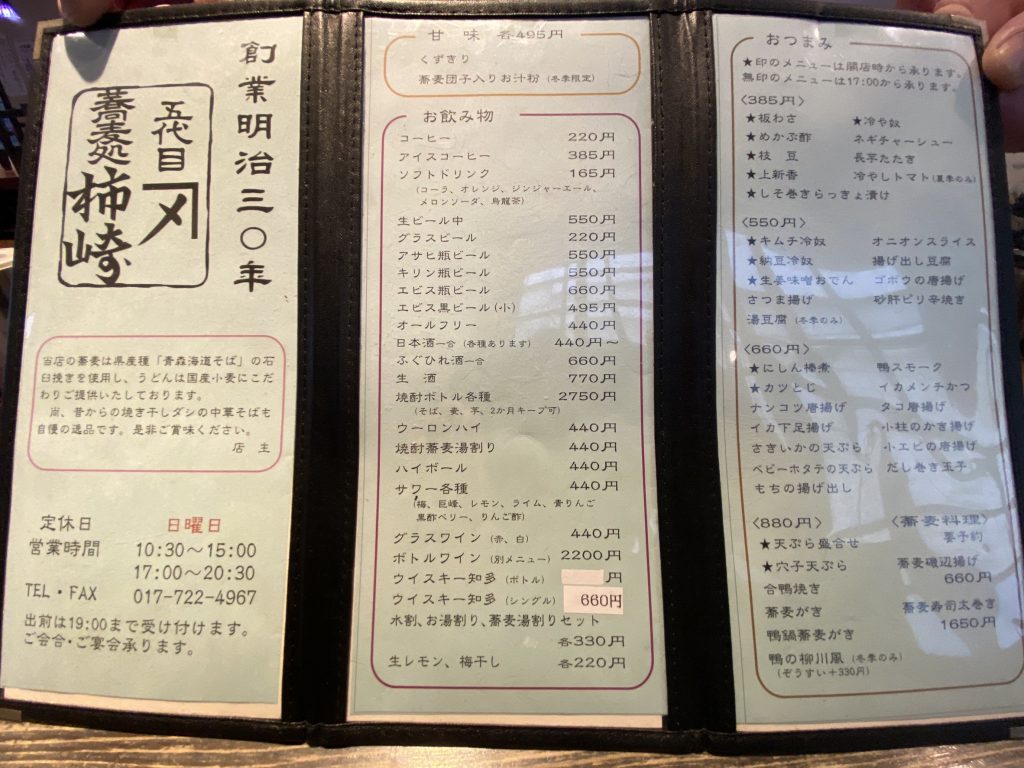 創業明治三〇年
五代目
蕎麦処 柿崎
当店の蕎麦は県産種「青森海道そば」の石
臼挽きを使用し、うどんは国産小麦にこだ
わりご提供いたしております。
尚、昔からの焼き干しダシの中華そばも
自慢の逸品です。是非ご賞味ください。
店 主
定休日 日曜日
営業時間 10:30～15:00
17:00～20:30
TEL・FAX 017-722-4967
出前は19:00まで受け付けます。
ご会合・ご宴会承ります。
甘 味 各495円
くずきり
蕎麦団子入りお汁粉 (冬季限定)
お飲み物
コーヒー 220円
アイスコーヒー 385円
ソフトドリンク 165円
(コーラ、オレンジ、ジンジャーエール、
メロンソーダ、烏龍茶)
生ビール中 550円
グラスビール 220円
アサヒ瓶ビール 550円
キリン瓶ビール 550円
エビス瓶ビール 660円
エビス黒ビール(小) 495円
オールフリー 440円
日本酒一合 (各種あります) 440円～
ふぐひれ酒一合 660円
生 酒 770円
焼酎ボトル各種 2750円
(そば、麦、芋、2か月キープ可)
ウーロンハイ 440円
焼酎蕎麦湯割り 440円
ハイボール 440円
サワー各種 440円
(梅、巨峰、レモン、ライム、青りんご
黒酢ベリー、りんご酢)
グラスワイン (赤、白) 440円
ボトルワイン (別メニュー) 2200円
ウイスキー知多 (ボトル) 円
ウイスキー知多 (シングル) 660円
水割、お湯割り、蕎麦湯割りセット
各330円
生レモン、梅干し 各220円
おつまみ
★印のメニューは開店時から承ります。
無印のメニューは17:00から承ります。
〈385円〉
★板わさ ★冷や奴
★めかぶ酢 ネギチャーシュー
★枝 豆 長芋たたき
★上新香 冷やしトマト(夏季のみ)
★しそ巻きらっきょ漬け
〈550円〉
★キムチ冷奴 オニオンスライス
★納豆冷奴 揚げ出し豆腐
★生姜味噌おでん ゴボウの唐揚げ
さつま揚げ 砂肝ピリ辛焼き
湯豆腐 (冬季のみ)
〈660円〉
★にしん棒煮 鴨スモーク
★カツとじ イカメンチかつ
ナンコツ唐揚げ タコ唐揚げ
イカ下足揚げ 小柱のかき揚げ
さきいかの天ぷら 小エビの唐揚げ
ベビーホタテの天ぷら だし巻き玉子
もちの揚げ出し
〈880円〉 〈蕎麦料理〉
★天ぷら盛合せ 要予約
★穴子天ぷら 蕎麦磯辺揚げ
合鴨焼き 660円
蕎麦がき 蕎麦寿司太巻き
鴨鍋蕎麦がき 1650円
鴨の柳川風 (冬季のみ)
(ぞうすい+330円)